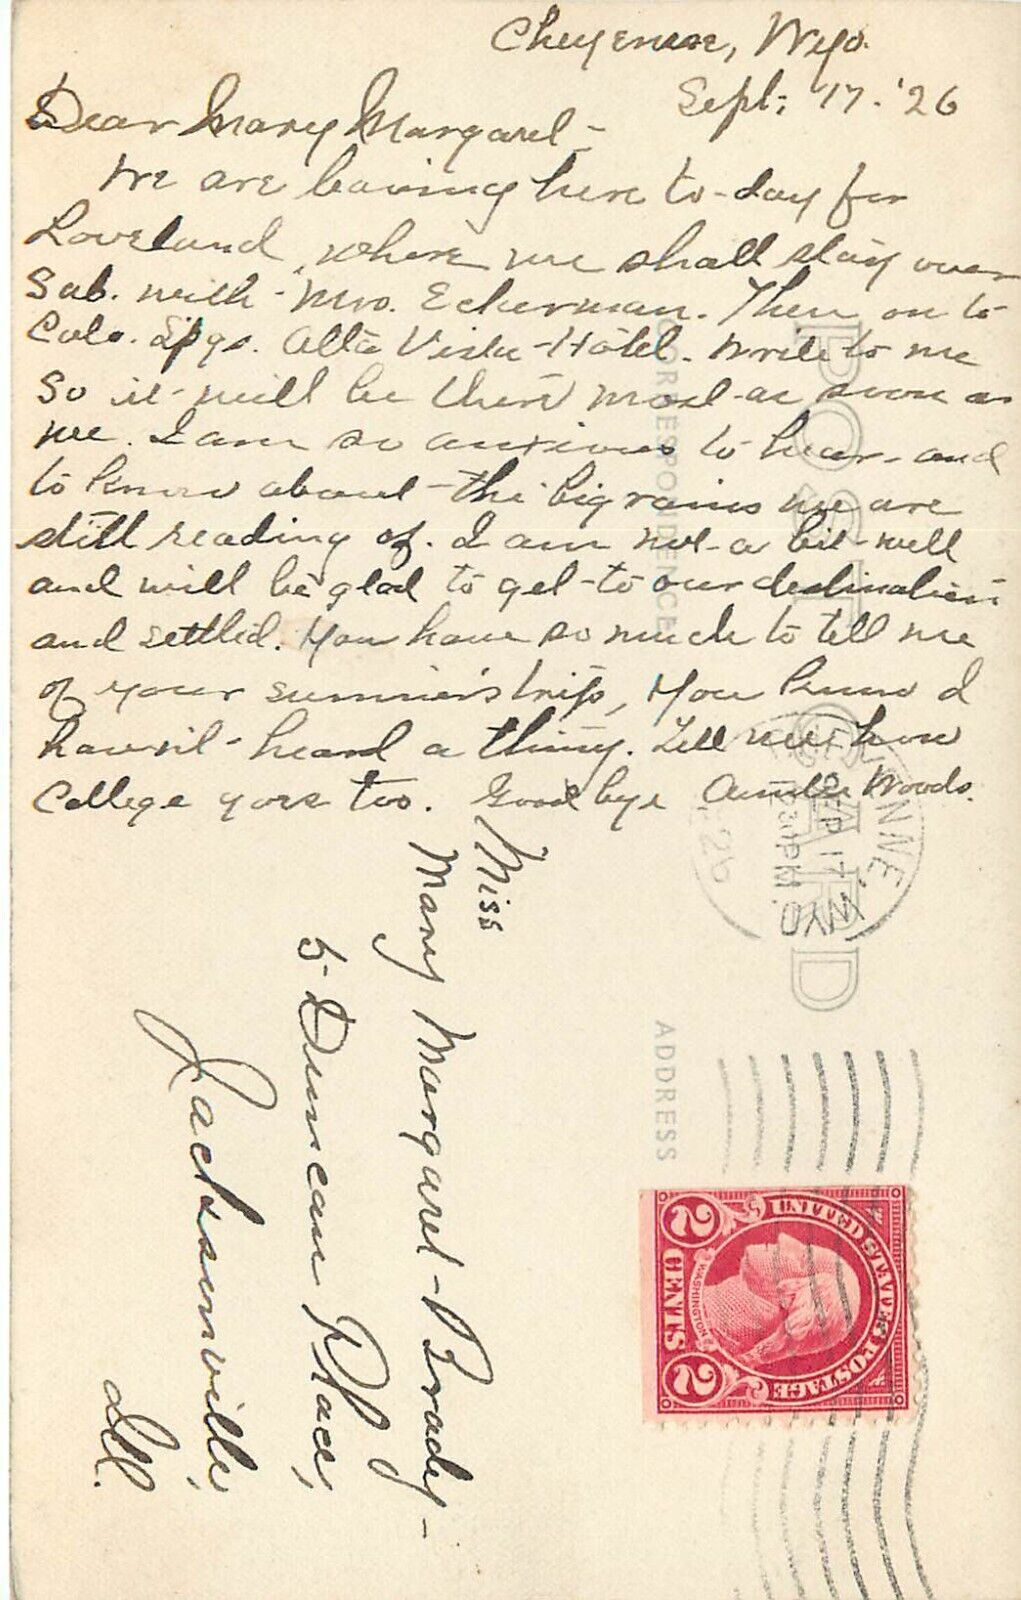 Cheyenne, Wyo.
Sept. 17. '26
Dear Mary Margaret -
We are leaving here to-day for
Loveland, where we shall stay over
Sab. with Mrs. Eckerman. Then on to
Colo. Spgs. Alta Vista Hotel. Write to me
so it will be there most as soon as
we. I am so anxious to hear and
to know about the big rains we are
still reading of. I am not a bit well
and will be glad to get to our destination
and settled. You have so much to tell me
of your summer's trip, You know I
haven't heard a thing. Tell me how
College goes too. Good bye Auntie Woods.
Miss
Mary Margaret Brady -
5 Duncan Place,
Jacksonville,
Ill.
POST CARD
CORRESPONDENCE
ADDRESS
CHEYENNE, WYO.
SEP 17
30 PM
'26
UNITED STATES POSTAGE
WASHINGTON
2 CENTS 2